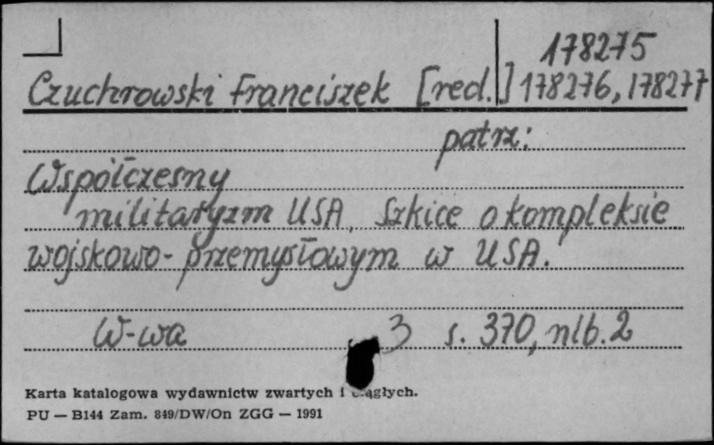 178275
Czuchrowski Franciszek [red.] 178276, 178277
patrz:
Współczesny
militaryzm USA. Szkice o kompleksie
wojskowo-przemysłowym w USA.
W-wa 3 s. 370, nlb. 2
Karta katalogowa wydawnictw zwartych i
PU — B144 Zam. 849/DW/On ZGG — 1991